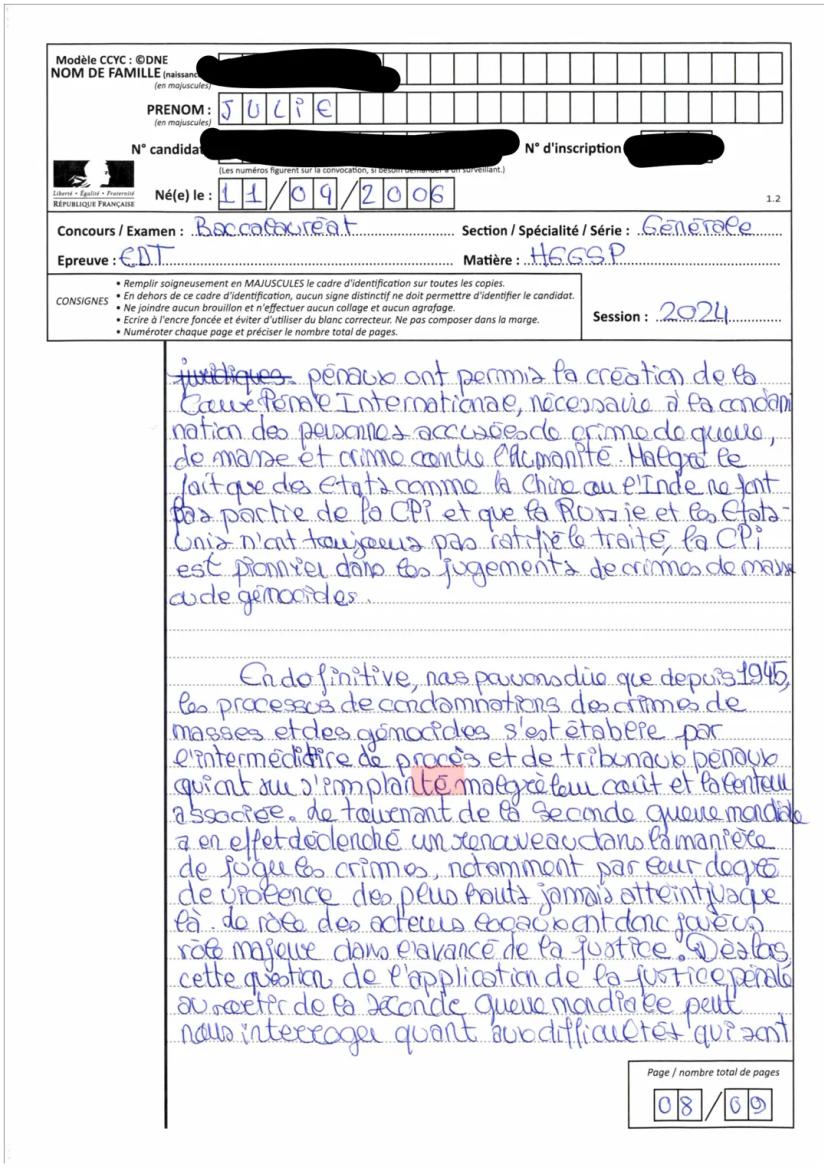 Modèle CCYC : ©DNE
NOM DE FAMILLE (naissance
(en majuscules)
PRENOM : JULIE
(en majuscules)
N° candidat N° d'inscription
(Les numéros figurent sur la convocation, si besoin demander à un surveillant.)
Liberté • Égalité • Fraternité
RÉPUBLIQUE FRANÇAISE
Né(e) le : 11/09/2006
1.2
Concours / Examen : Baccalauréat Section / Spécialité / Série : Générale
Epreuve : EDT Matière : HGGSP
CONSIGNES
• Remplir soigneusement en MAJUSCULES le cadre d'identification sur toutes les copies.
• En dehors de ce cadre d'identification, aucun signe distinctif ne doit permettre d'identifier le candidat.
• Ne joindre aucun brouillon et n'effectuer aucun collage et aucun agrafage.
• Ecrire à l'encre foncée et éviter d'utiliser du blanc correcteur. Ne pas composer dans la marge.
• Numéroter chaque page et préciser le nombre total de pages.
Session : 2024
juridiques pénaux ont permis la création de la
Cour Pénale Internationale, nécessaire à la condam
nation des personnes accusées de crime de guerre,
de masse et crime contre l'Humanité. Malgré le
fait que des Etats comme la Chine ou l'Inde ne font
pas partie de la CPi et que la Russie et les Etats-
Unis n'ont toujours pas ratifié le traité, la CPi
est pionnier dans les jugements de crimes de masse
ou de génocides.
En définitive, nous pouvons dire que depuis 1945,
les processus de condamnations des crimes de
masses et des génocides s'est établie par
l'intermédiaire de procès et de tribunaux pénaux
qui ont su s'implanté malgré leur coût et la lenteur
associée. Le tournant de la Seconde guerre mondiale
a en effet déclenché un renouveau dans la manière
de juger les crimes, notamment par leur degré
de violence des plus hauts jamais atteint jusque
là. Le rôle des acteurs locaux ont donc joué un
rôle majeur dans l'avancé de la justice. Dès lors,
cette question de l'application de la justice pénale
au sortir de la Seconde guerre mondiale peut
nous interroger quant aux difficultés qui sont
Page / nombre total de pages
08/09